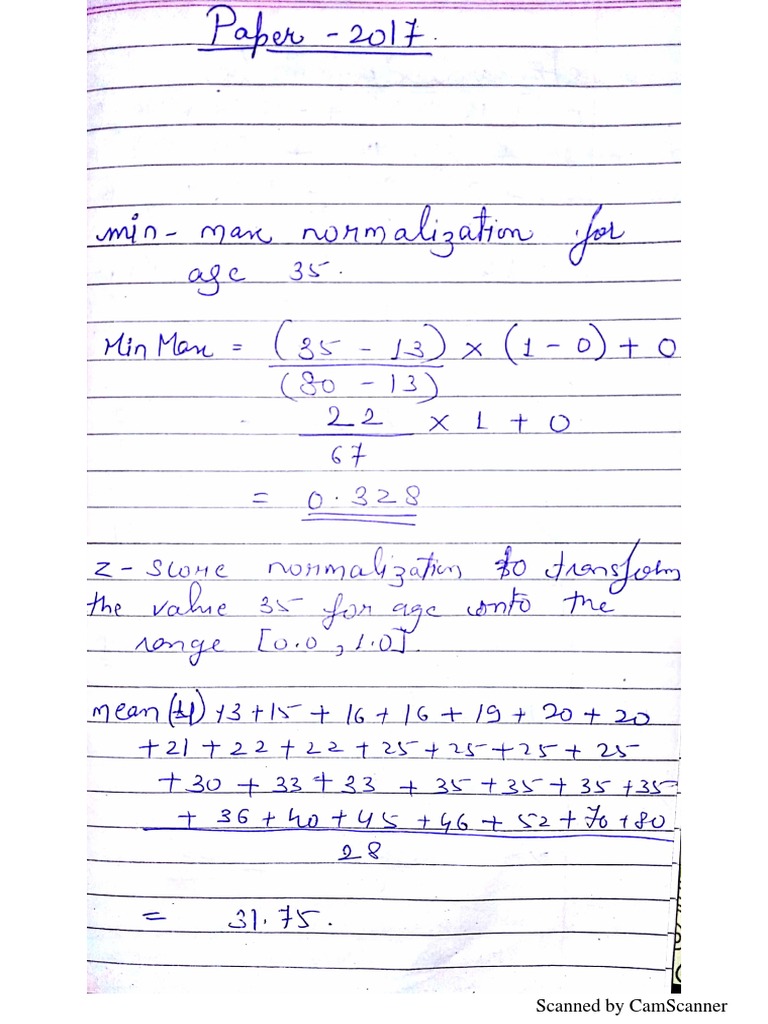 Paper - 2017.
min - max normalization for
age 35.
Min Max = (35 - 13) × (1 - 0) + 0
(80 - 13)
22 × 1 + 0
67
= 0.328
z - score normalization to transform
the value 35 for age onto the
range [0.0, 1.0].
mean 13 + 15 + 16 + 16 + 19 + 20 + 20
+ 21 + 22 + 22 + 25 + 25 + 25 + 25
+ 30 + 33 + 33 + 35 + 35 + 35 + 35
+ 36 + 40 + 45 + 46 + 52 + 70 + 80
28
= 31.75.
Scanned by CamScanner